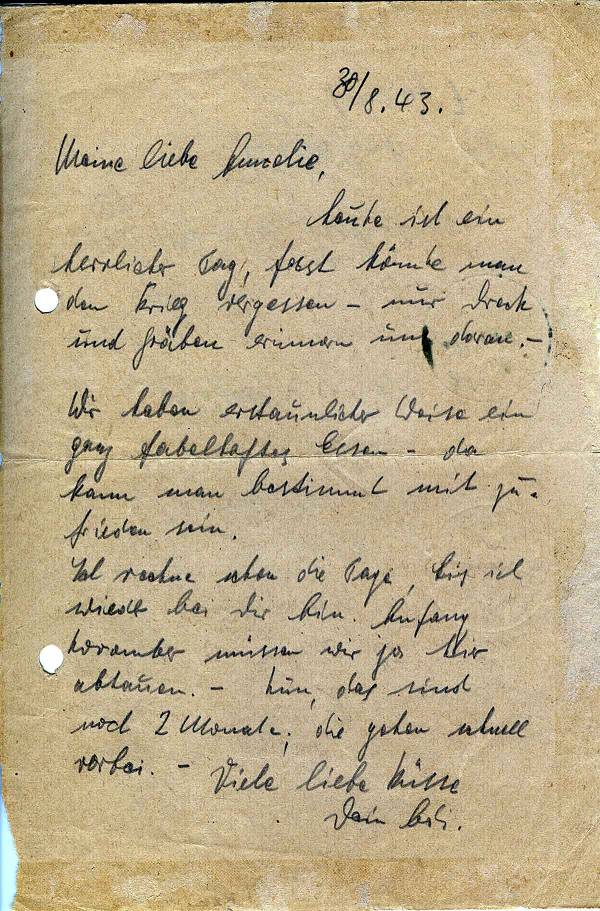 30/8.43.
Meine liebe Annelie,
heute ist ein
herrlicher Tag, fast könnte man
den Krieg vergessen – nur Dreck
und Gräben erinnern uns daran. –
Wir haben erstaunlicher Weise ein
ganz fabelhaftes Essen – da
kann man bestimmt mit zu-
frieden sein.
Ich rechne schon die Tage, bis ich
wieder bei Dir bin. Anfang
November müssen wir ja hier
abhauen. – Nun, das sind
noch 2 Monate, die gehen schnell
vorbei. –
Viele liebe Küsse
Dein